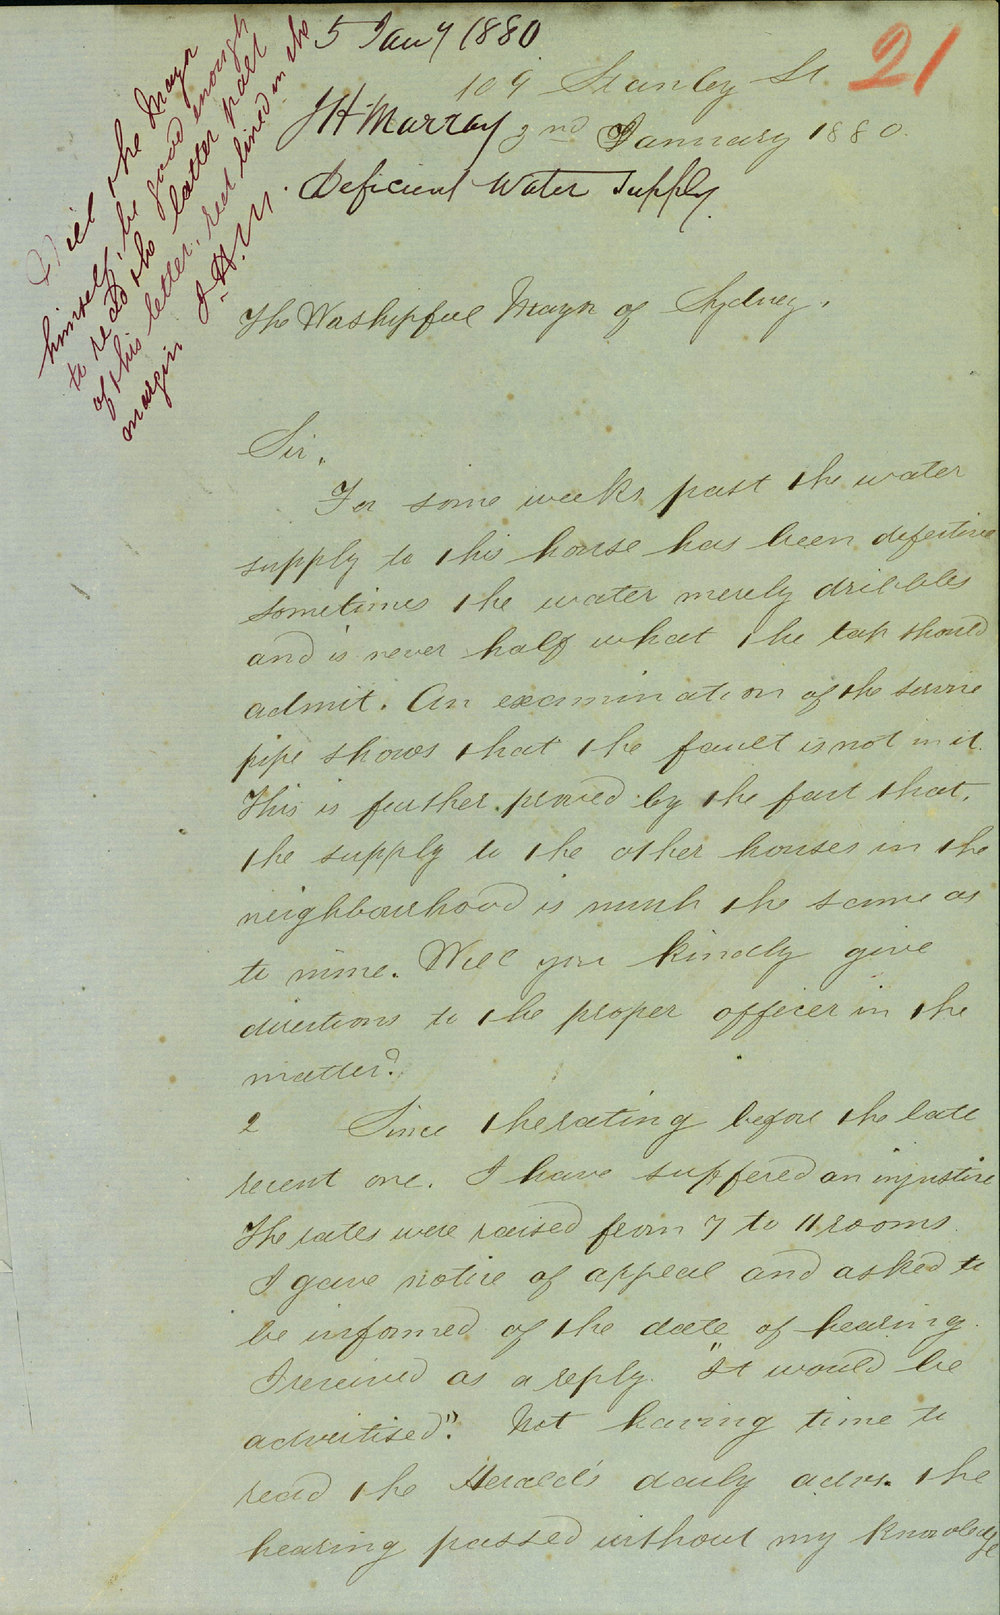 5 Jany 1880
21
109 Stanley St
JH Murray 2nd January 1880
Deficient Water Supply
Will the Mayor
himself, be good enough
to read the latter part
of this letter, red lined in the
margin J.H.M.
The Worshipful Mayor of Sydney.
Sir,
For some weeks past the water
supply to this house has been defective
sometimes the water merely dribbles
and is never half what the tap should
admit. An examination of the service
pipe shows that the fault is not in it.
This is further proved by the fact that,
the supply to the other houses in the
neighbourhood is much the same as
to mine. Will you kindly give
directions to the proper officer in the
matter?
2 Since the rating before the late
recent one. I have suffered an injustice
The rates were raised from 7 to 11 rooms.
I gave notice of appeal and asked to
be informed of the date of hearing.
I received as a reply. "It would be
advertised". Not having time to
read the Herald's daily advs. the
hearing passed without my knowledge